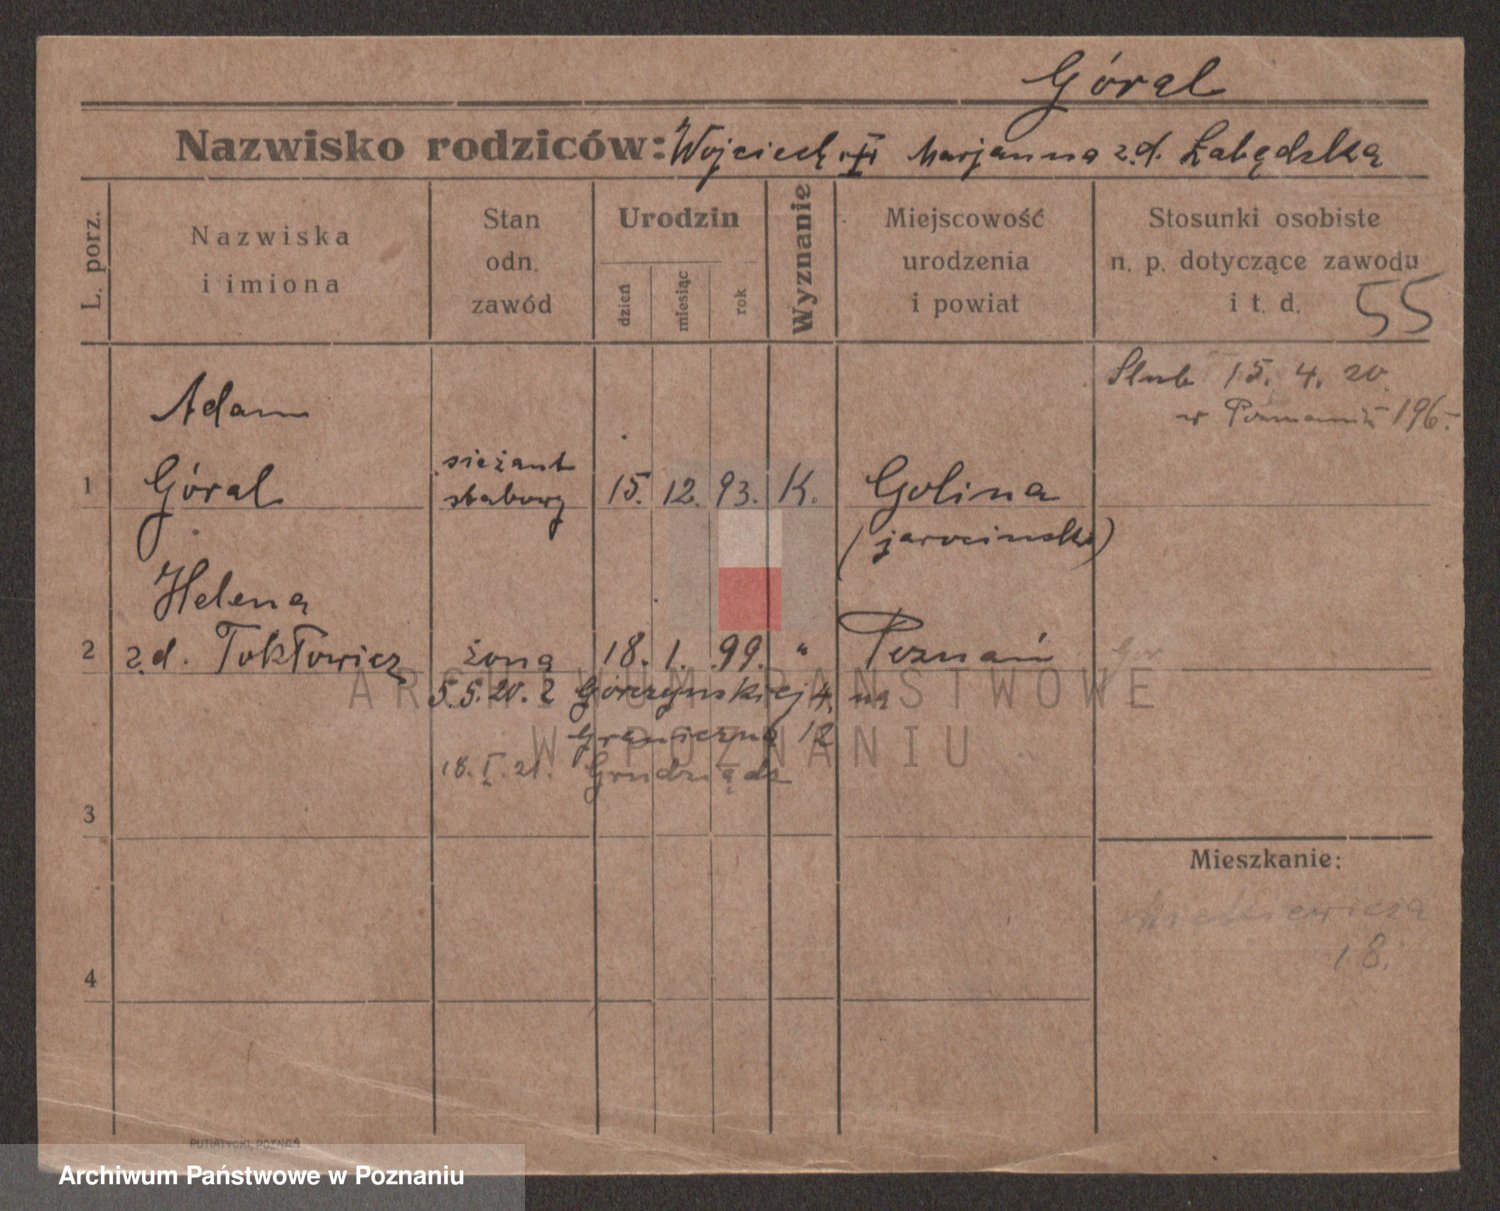 Góral
Nazwisko rodziców: Wojciech i Marjanna z.d. Łabędzka
L. porz.
Nazwiska
i imiona
Stan
odn.
zawód
Urodzin
dzień
miesiąc
rok
Wyznanie
Miejscowość
urodzenia
i powiat
Stosunki osobiste
n. p. dotyczące zawodu
i t. d. 55
Ślub 15. 4. 20.
w Poznaniu 196.
Adam
1 Góral sieżant
sztabowy 15. 12. 93. K. Golina
(jarocinski)
Helena
2 z.d. Tokłowicz żona 18. 1. 99. " Poznań
5.5.20. z Górczynskiej 4. na
Graniczną 12
18. I. 21. Grudziądz
3
Mieszkanie:
Mickiewicza
18.
4
PUTIATYCKI, POZNAŃ
ARCHIWUM PAŃSTWOWE
W POZNANIU
Archiwum Państwowe w Poznaniu